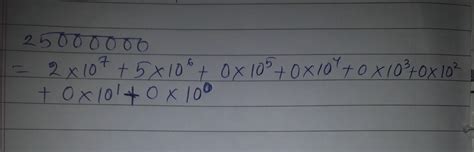 25000000
= 2×10⁷ + 5×10⁶ + 0×10⁵ + 0×10⁴ + 0×10³ + 0×10²
+ 0×10¹ + 0×10⁰